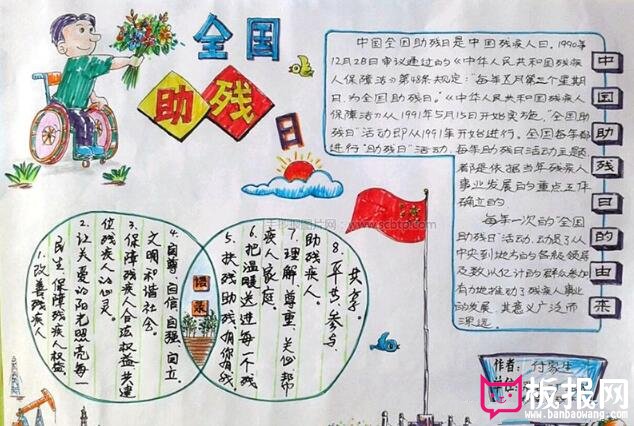 全国
助残
日
中国全国助残日是中国残疾人日,1990年
12月28日审议通过的《中华人民共和国残疾
人保障法》第48条规定:"每年五月第三个星期
日,为全国助残日。"《中华人民共和国残疾人
保障法》从1991年5月15日开始实施,"全国助
残日"活动即从1991年开始进行。全国每年都
进行"助残日"活动,每年助残日活动主题
都是依据当年残疾人
事业发展的重点工作
确立的
每年一次的"全国
助残日"活动,动员了从
中央到地方的各级领导
及数以亿计的群众参加
有力地推动了残疾人事业
的发展,其意义广泛而
深远。
中国助残日的由来
语录
1.改善残疾人
民生,保障残疾人权益
2.让关爱的阳光照亮每一
位残疾人的心灵。
3.保障残疾人合法权益,共建
文明和谐社会。
4.自尊、自信、自强、自立。
5.扶残助残,有你有我
6.把温暖送进每一个残
疾人家庭。
7.理解、尊重、关心、帮
助残疾人。
8.平共参与
共享。
作者:付家生
板报网
www.banbaowang.com